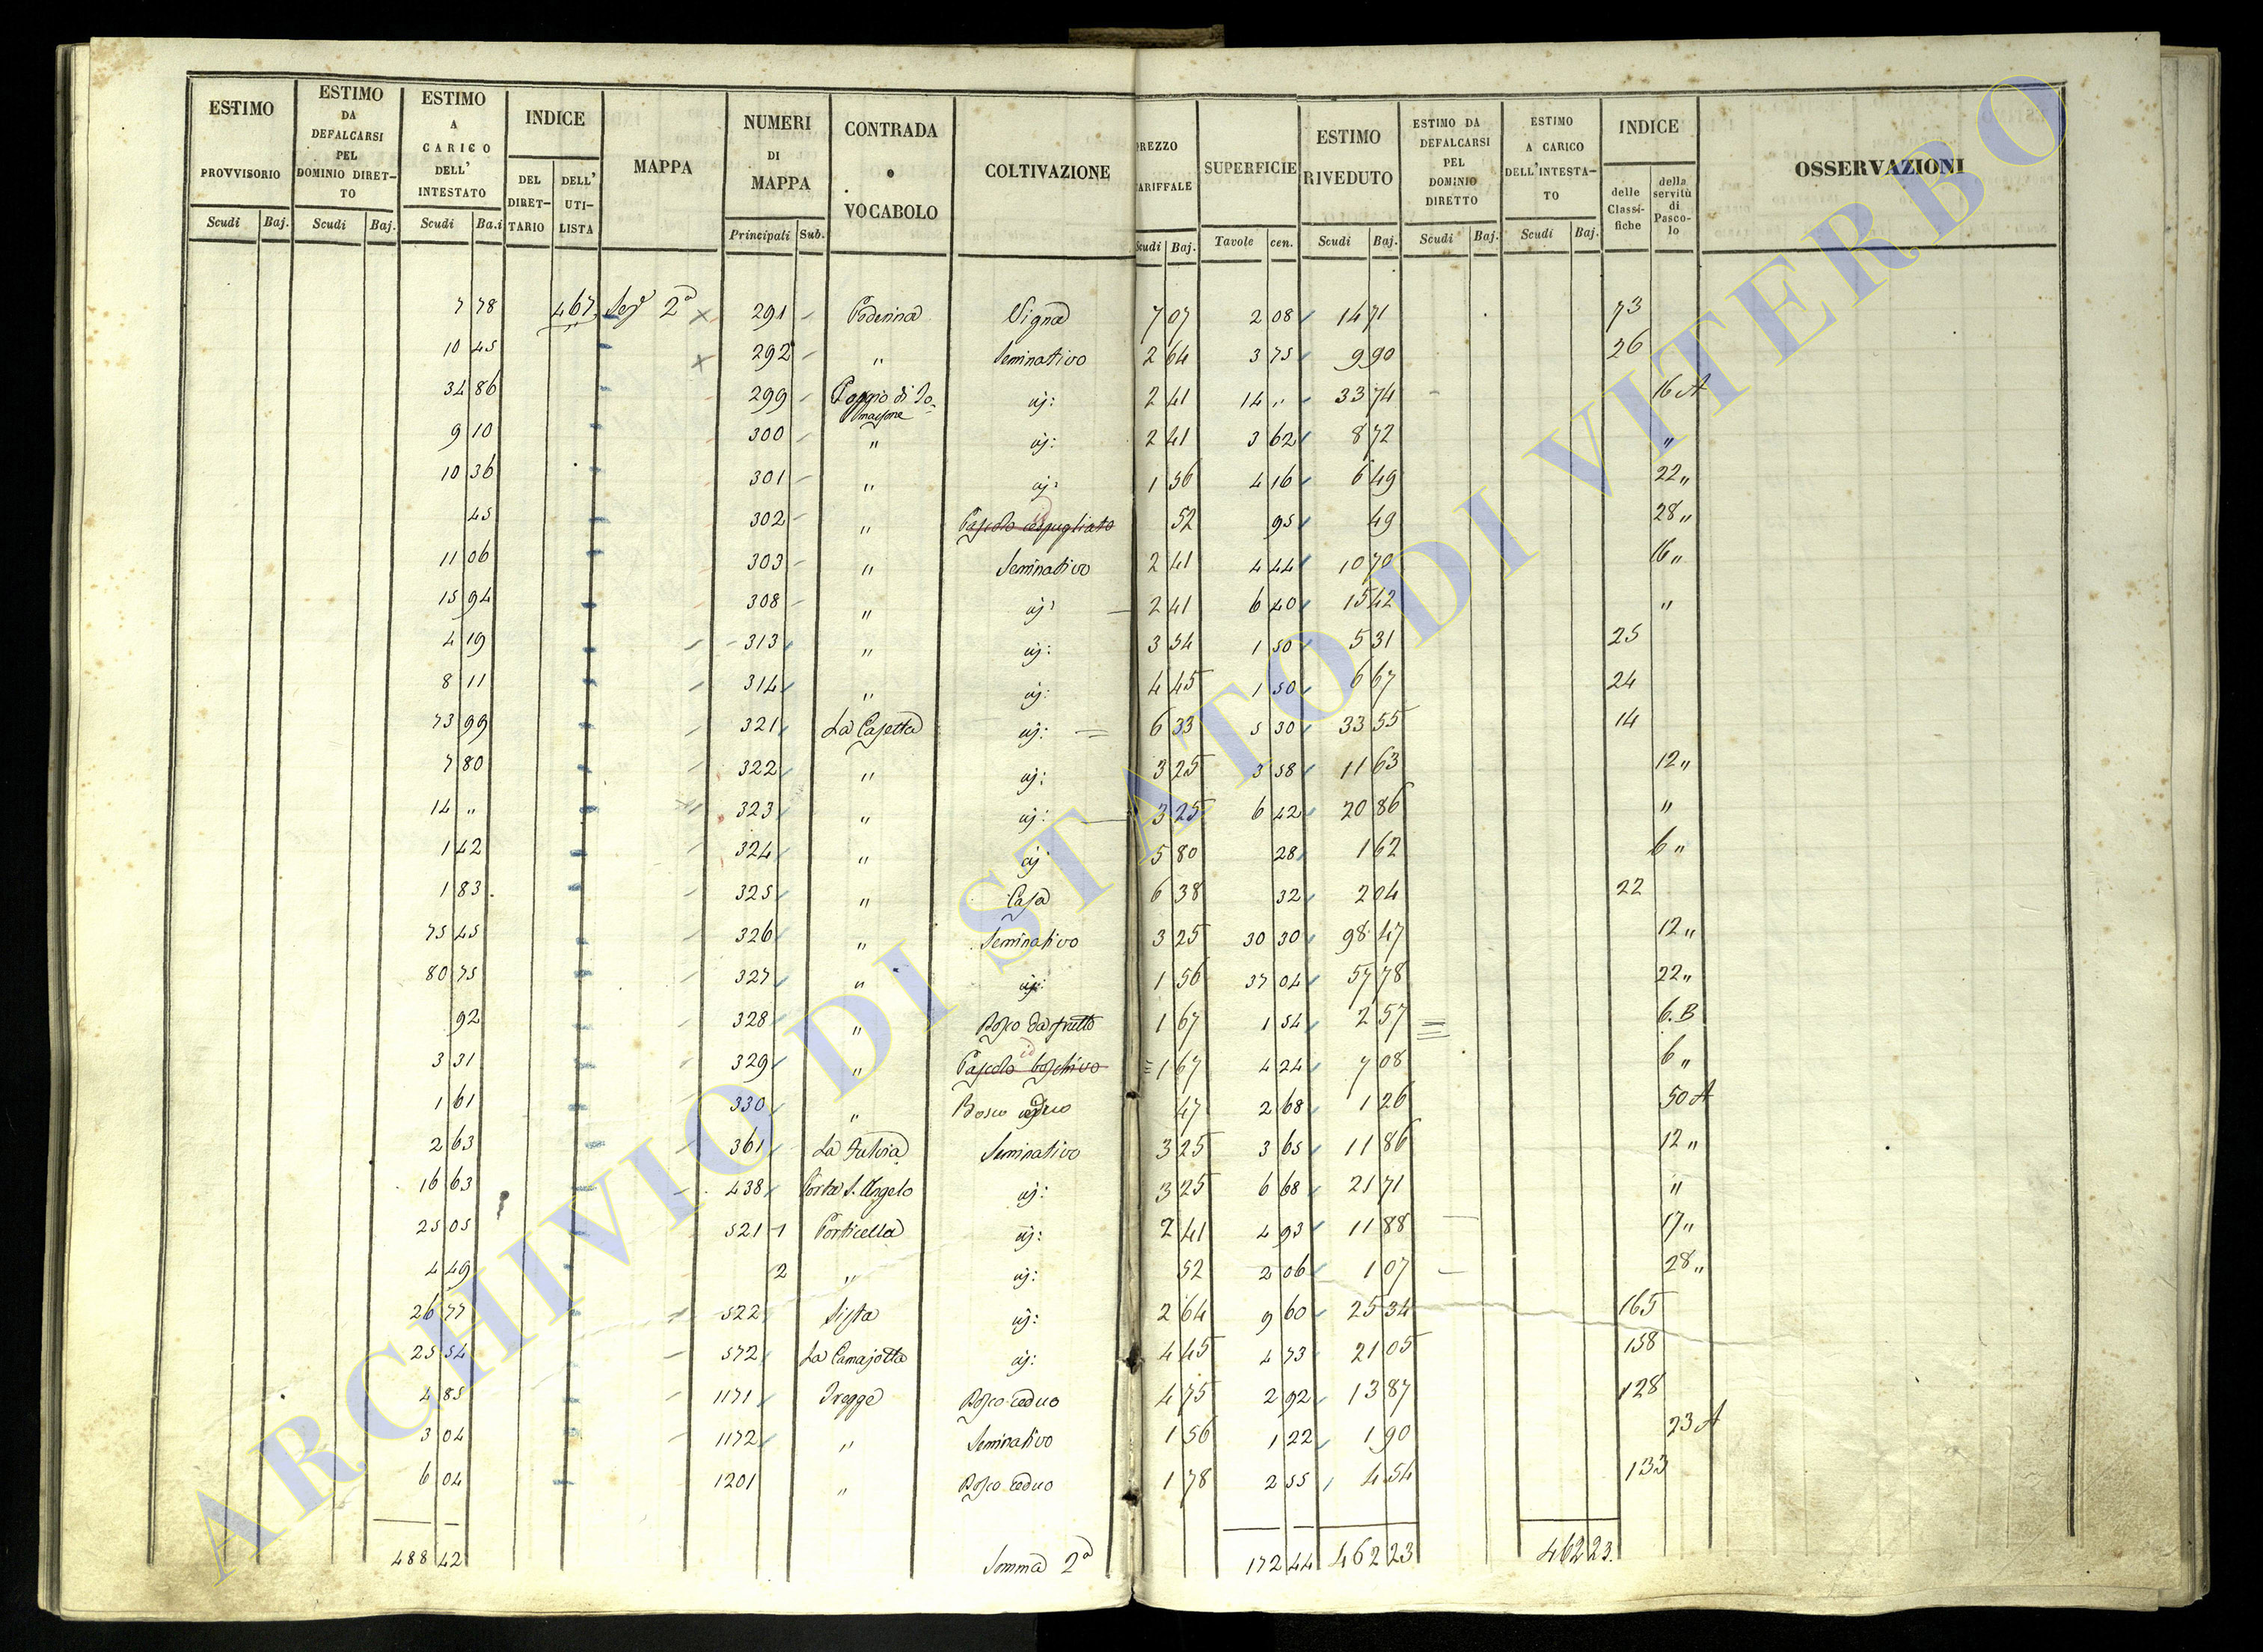 ESTIMO PROVVISORIO
ESTIMO DA DEFALCARSI PEL DOMINIO DIRET- TO
ESTIMO A CARICO DELL' INTESTATO
INDICE
DEL DIRET- TARIO
DELL' UTI- LISTA
MAPPA
NUMERI DI MAPPA
CONTRADA o VOCABOLO
COLTIVAZIONE
REZZO ARIFFALE
SUPERFICIE
ESTIMO RIVEDUTO
ESTIMO DA DEFALCARSI PEL DOMINIO DIRETTO
ESTIMO A CARICO DELL'INTESTA- TO
INDICE
delle Classi- fiche
della servitù di Pasco- lo
OSSERVAZIONI
Scudi Baj. Scudi Baj. Scudi Ba.i Principali Sub. Scudi Baj. Tavole cen. Scudi Baj. Scudi Baj. Scudi Baj.
7 78 467 Segᵉ 2ª 291 Poderina Vigna 7 07 2 08 14 71 73
10 45 292 " Seminativo 2 64 3 75 9 90 26
34 86 299 Poggio di To- massone id: 2 41 14 " 33 74 16 A
9 10 300 " id: 2 41 3 62 8 72 "
10 36 301 " id: 1 56 4 16 6 49 22 "
45 302 " Pascolo cespugliato 52 95 49 28 "
11 06 303 " Seminativo 2 41 4 44 10 70 16 "
15 94 308 " id: 2 41 6 40 15 42 "
4 19 313 " id: 3 54 1 50 5 31 25
8 11 314 " id: 4 45 1 50 6 67 24
73 99 321 La Casetta id: 6 33 5 30 33 55 14
7 80 322 " id: 3 25 3 58 11 63 12 "
14 " 323 " id: 3 25 6 42 20 86 "
1 42 324 " id 5 80 28 1 62 6 "
1 83 325 " Casa 6 38 32 2 04 22
75 45 326 " Seminativo 3 25 30 30 98 47 12 "
80 75 327 " id: 1 56 37 04 57 78 22 "
92 328 " Bosco da frutto 1 67 1 54 2 57 6. B
3 31 329 " Pascolo boschivo id 1 67 4 24 7 08 6 "
1 61 330 " Bosco ceduo 47 2 68 1 26 50 A
2 63 361 La Fulvia Seminativo 3 25 3 65 11 86 12 "
16 63 438 Porta S. Angelo id: 3 25 6 68 21 71 "
25 05 521 1 Porticella id: 2 41 4 93 11 88 17 "
4 49 2 " id: 52 2 06 1 07 28 "
26 77 522 Sista id: 2 64 9 60 25 34 165
25 54 572 La Camajotta id: 4 45 4 73 21 05 158
4 85 1171 Bosco ceduo 4 75 2 92 13 87 128
3 04 1172 " Seminativo 1 56 1 22 1 90 23 A
6 04 1201 " Bosco ceduo 1 78 2 55 4 54 133
488 42 Somma 2ª 172 44 462 23 462 23.
ARCHIVIO DI STATO DI VITERBO